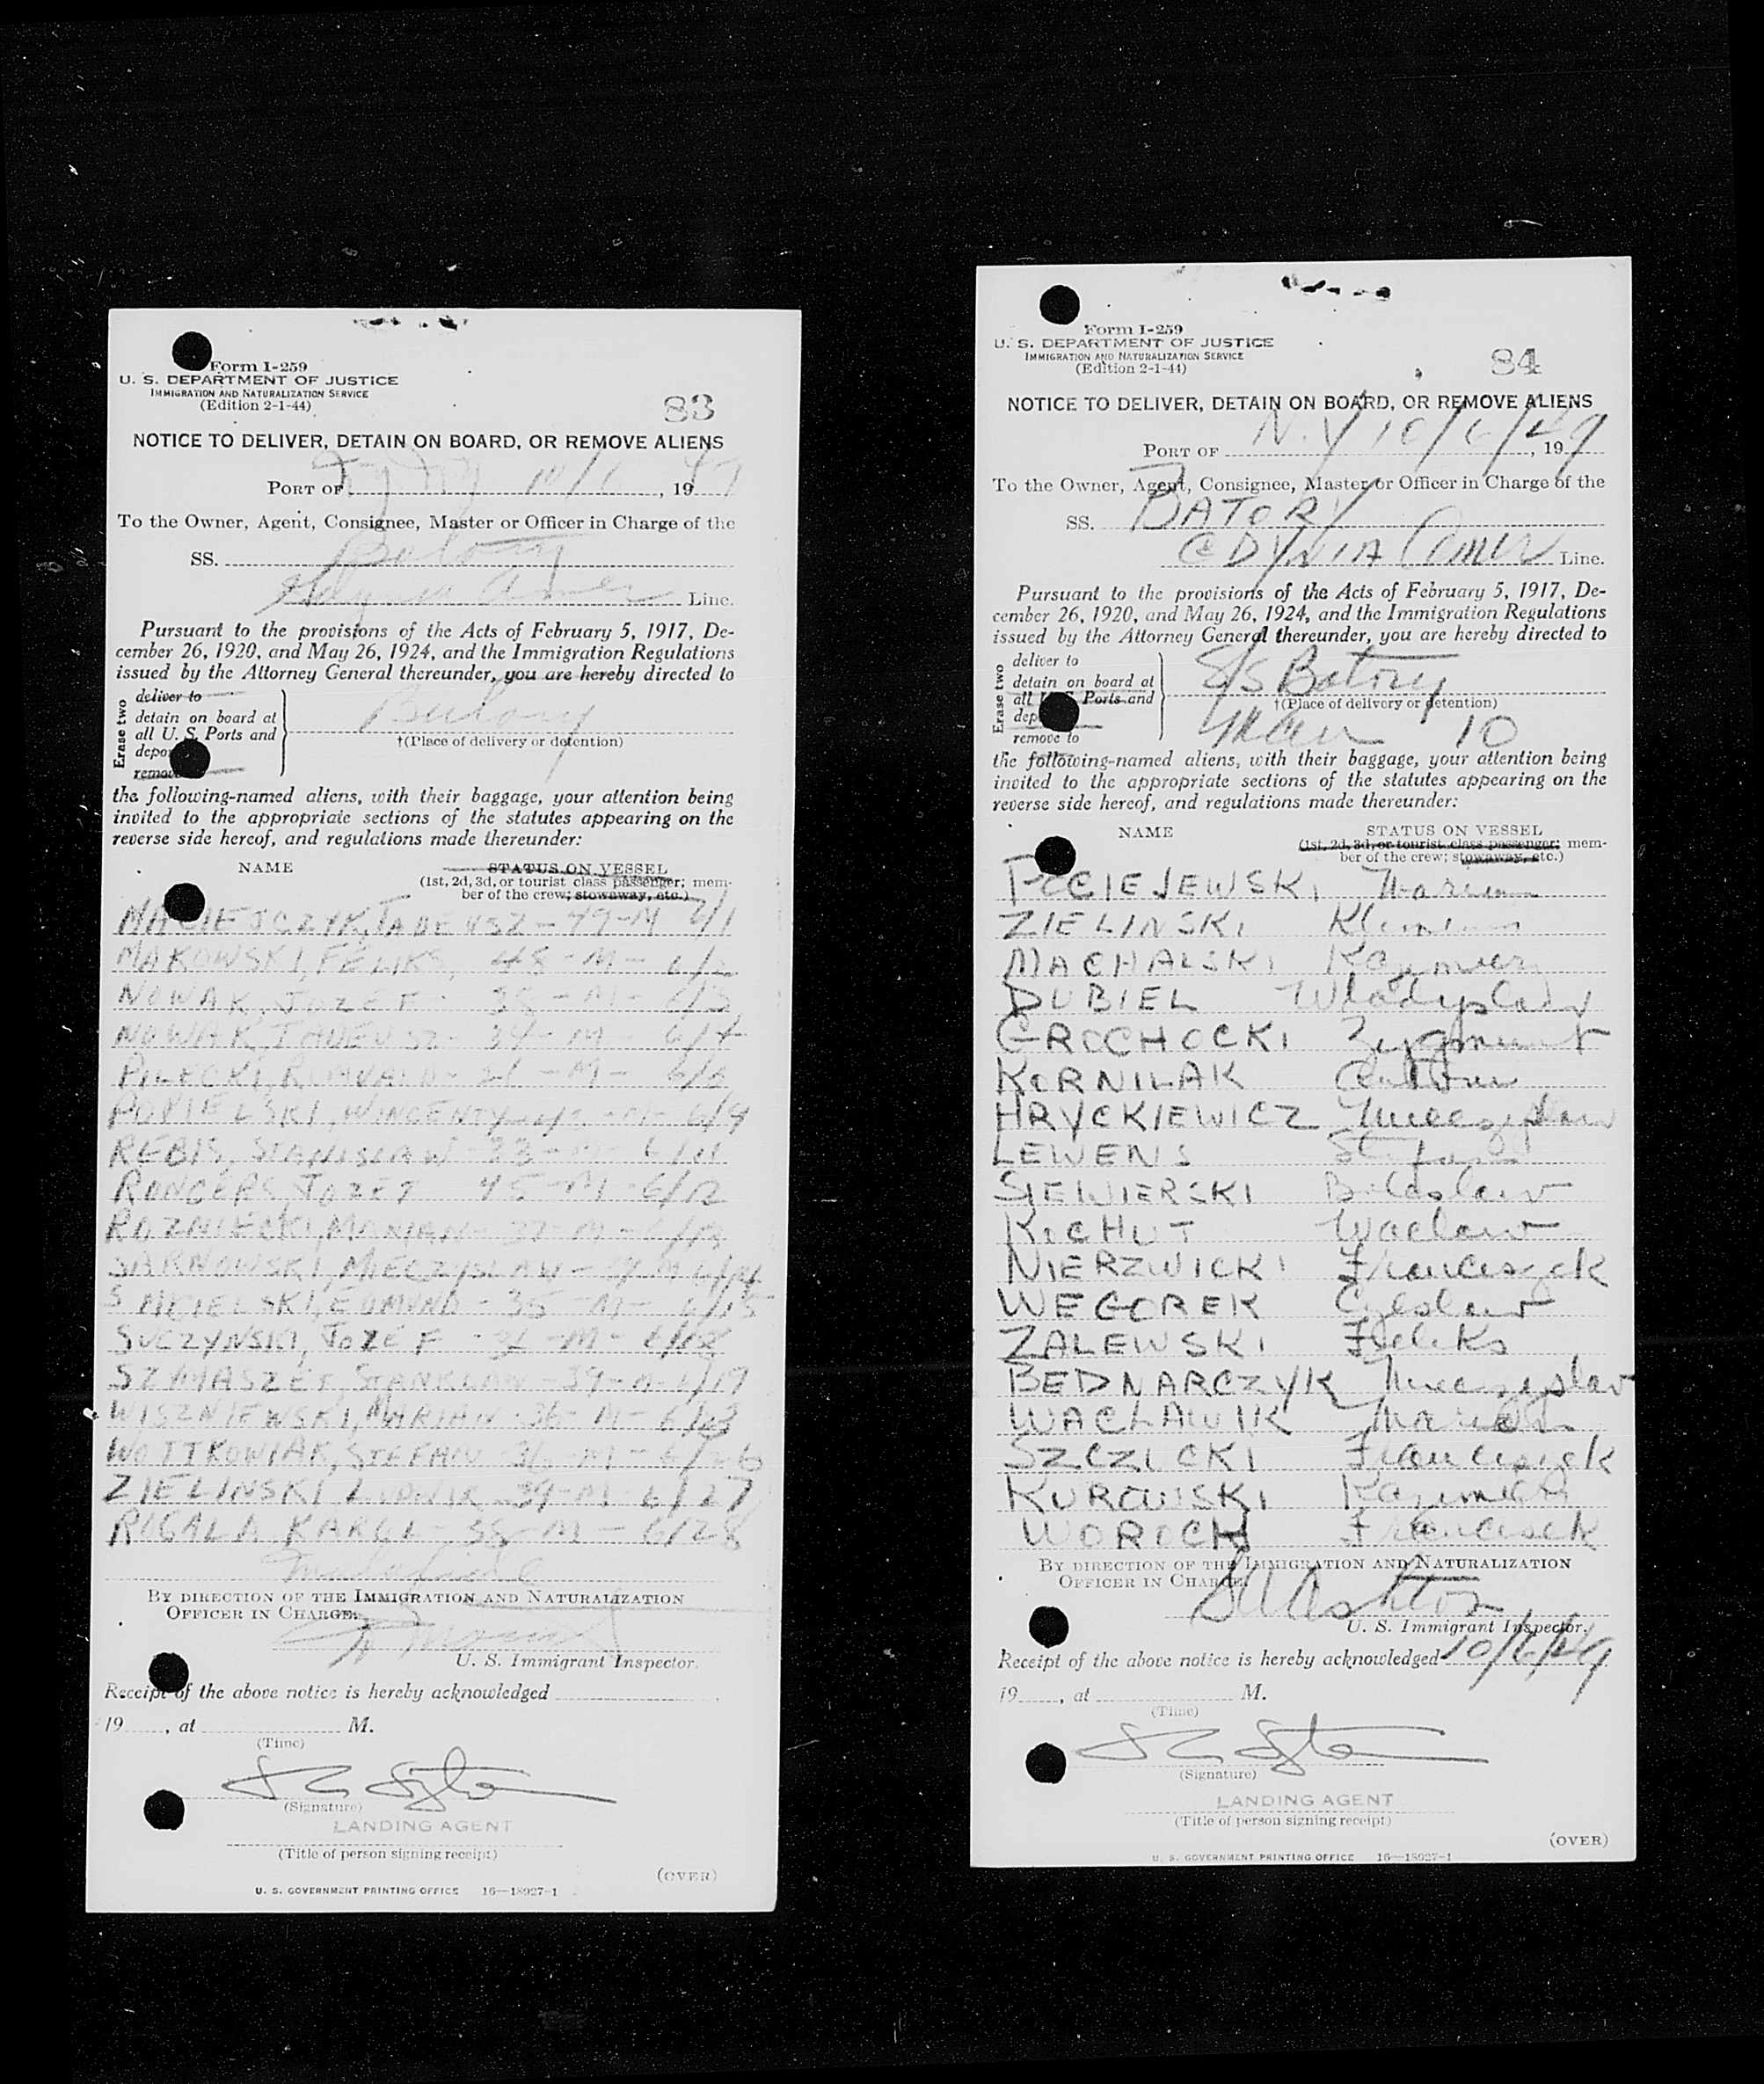 Form I-259
U. S. DEPARTMENT OF JUSTICE
IMMIGRATION AND NATURALIZATION SERVICE
(Edition 2-1-44)
83
NOTICE TO DELIVER, DETAIN ON BOARD, OR REMOVE ALIENS
PORT OF 10/6, 19
To the Owner, Agent, Consignee, Master or Officer in Charge of the
SS. Batory
Gdynia Amer Line.
Pursuant to the provisions of the Acts of February 5, 1917, De-
cember 26, 1920, and May 26, 1924, and the Immigration Regulations
issued by the Attorney General thereunder, you are hereby directed to
Erase two
deliver to
detain on board at
all U. S. Ports and
depor
remove
Batory
†(Place of delivery or detention)
the following-named aliens, with their baggage, your attention being
invited to the appropriate sections of the statutes appearing on the
reverse side hereof, and regulations made thereunder:
NAME
STATUS ON VESSEL
(1st, 2d, 3d, or tourist class passenger; mem-
ber of the crew; stowaway, etc.)
MACIEJCZYK, TADEUSZ - 49 - M 6/1
MAKOWSKI, FELIKS, 48 - M - 6/2
NOWAK, JOZEF - 38 - M - 6/3
NOWAK, TADEUSZ - 34 - M - 6/4
PILECKI, ROMUALD - 21 - M - 6/6
WINCENTY - M - 6/9
REBIS, STANISLAW - 33 - M 6/11
RONGERS, JOZEF 45 - M - 6/12
ROZNIECKI, MARIAN - 37 - M - 6/13
SARNOWSKI, MIECZYSLAW - M 6/14
EDMUND - 35 - M - 6/15
SUCZYNSKI, JOZEF - M - 6/18
STANISLAW - 39 - M - 6/19
WISZNIEWSKI, MARIAN - 36 - M - 6/23
WOJTKOWIAK, STEFAN - 36 - M - 6/26
ZIELINSKI LUDWIK - 39 - M 6/27
RIGALA KAROL - 38 - M - 6/28
Malafide
BY DIRECTION OF THE IMMIGRATION AND NATURALIZATION
OFFICER IN CHARGE.
U. S. Immigrant Inspector.
Receipt of the above notice is hereby acknowledged
19 , at M.
(Time)
(Signature)
LANDING AGENT
(Title of person signing receipt)
(OVER)
U. S. GOVERNMENT PRINTING OFFICE 16—18927-1
Form I-259
U. S. DEPARTMENT OF JUSTICE
IMMIGRATION AND NATURALIZATION SERVICE
(Edition 2-1-44)
84
NOTICE TO DELIVER, DETAIN ON BOARD, OR REMOVE ALIENS
PORT OF N.Y 10/6/49, 19
To the Owner, Agent, Consignee, Master or Officer in Charge of the
SS. BATORY
GDYNIA Amer Line.
Pursuant to the provisions of the Acts of February 5, 1917, De-
cember 26, 1920, and May 26, 1924, and the Immigration Regulations
issued by the Attorney General thereunder, you are hereby directed to
Erase two
deliver to
detain on board at
all U. S. Ports and
dep
remove to
S/S Batory
†(Place of delivery or detention)
10
the following-named aliens, with their baggage, your attention being
invited to the appropriate sections of the statutes appearing on the
reverse side hereof, and regulations made thereunder:
NAME
STATUS ON VESSEL
(1st, 2d, 3d, or tourist class passenger; mem-
ber of the crew; stowaway, etc.)
POCIEJEWSKI, Marian
ZIELINSKI Klemens
MACHALSKI Kazimierz
DUBIEL Wladyslaw
GROCHOCKI Zygmunt
KORNILAK Antoni
HRYCKIEWICZ Mieczyslaw
LEWENS Stefan
SIEWIERSKI Boleslaw
KOCHUT Waclaw
NIERZWICKI Franciszek
WEGOREK Czeslaw
ZALEWSKI Feliks
BEDNARCZYK Mieczyslaw
WACLAWIK Marian
SZCZICKI Franciszek
KUROWSKI Kazimierz
WOROCH Franciszek
BY DIRECTION OF THE IMMIGRATION AND NATURALIZATION
OFFICER IN CHARGE.
Ashton
U. S. Immigrant Inspector.
Receipt of the above notice is hereby acknowledged 10/6/49
19 , at M.
(Time)
(Signature)
LANDING AGENT
(Title of person signing receipt)
(OVER)
U. S. GOVERNMENT PRINTING OFFICE 16—18927-1